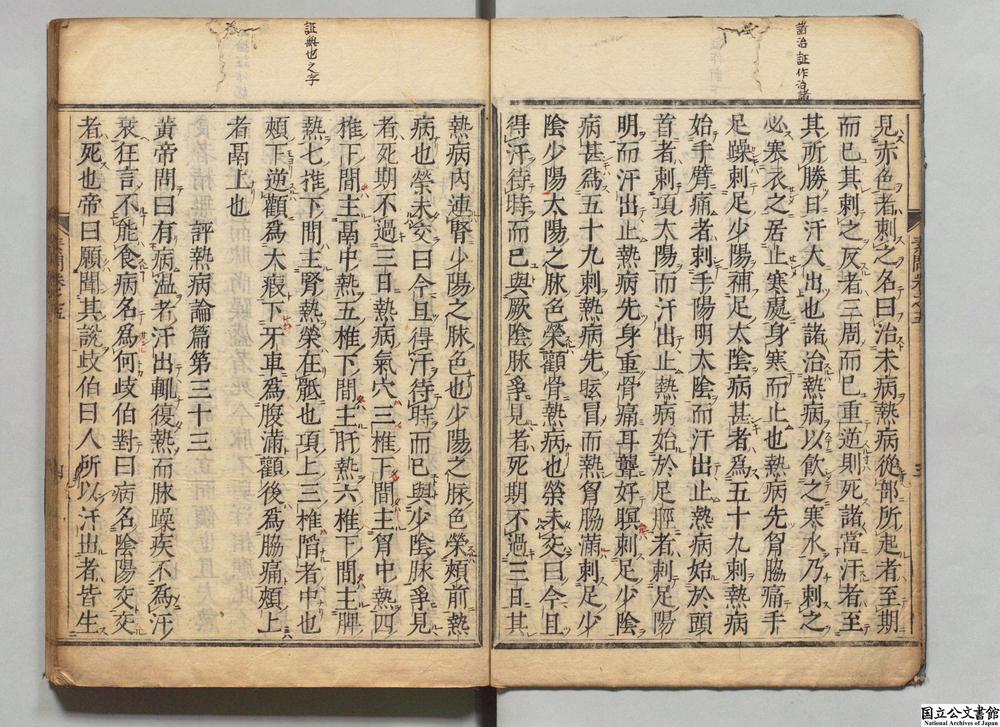 諸治証作治諸
見赤色者刺之名曰治未病熱病從部所起者至期
而已其刺之反者三周而已重逆則死諸當汗者至
其所勝日汗大出也諸治熱病以飲之寒水乃刺之
必寒衣之居止寒處身寒而止也熱病先胷脇痛手
足躁刺足少陽補足太陰病甚者爲五十九刺熱病
始手臂痛者刺手陽明太陰而汗出止熱病始於頭
首者刺項太陽而汗出止熱病始於足脛者刺足陽
明而汗出止熱病先身重骨痛耳聾好瞑刺足少陰
病甚爲五十九刺熱病先眩冒而熱胷脇滿刺足少
陰少陽太陽之脉色榮顴骨熱病也榮未交曰今且
得汗待時而已與厥陰脉爭見者死期不過三日其
証無也之字
熱病內連腎少陽之脉色也少陽之脉色榮頰前熱
病也榮未交曰今且得汗待時而已與少陰脉爭見
者死期不過三日熱病氣穴三椎下間主胷中熱四
椎下間主鬲中熱五椎下間主肝熱六椎下間主脾
熱七椎下間主腎熱榮在骶也項上三椎陷者中也
頰下逆顴爲大瘕下牙車爲腹滿顴後爲脇痛頰上
者鬲上也
評熱病論篇第三十三
黃帝問曰有病溫者汗出輒復熱而脉躁疾不爲汗
衰狂言不能食病名爲何歧伯對曰病名陰陽交交
者死也帝曰願聞其說歧伯曰人所以汗出者皆生
国立公文書館
National Archives of Japan